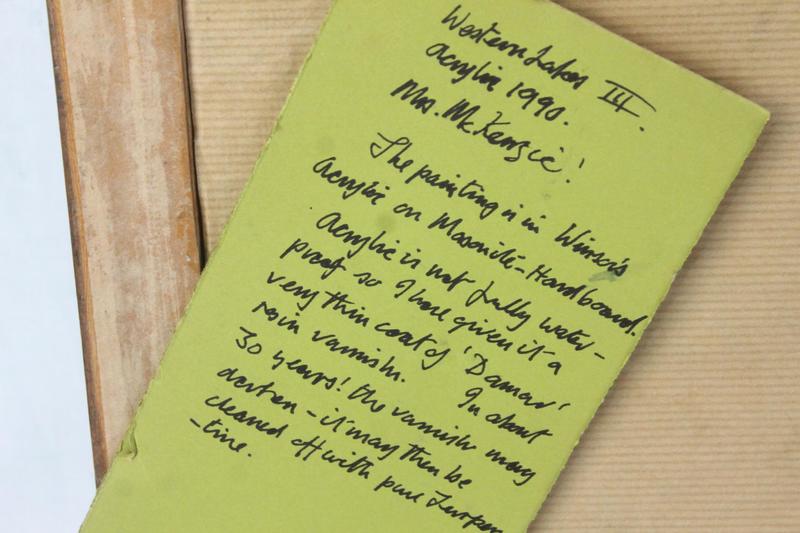 Western Lakes III.
Acrylic 1990.
Mrs. McKenzie!
The painting is in Winsor's
Acrylic on Masonite-Hardboard.
Acrylic is not fully water-
proof so I have given it a
very thin coat of 'Damar'
resin varnish. In about
30 years! the varnish may
darken - it may then be
cleaned off with pure Turpen
-tine.